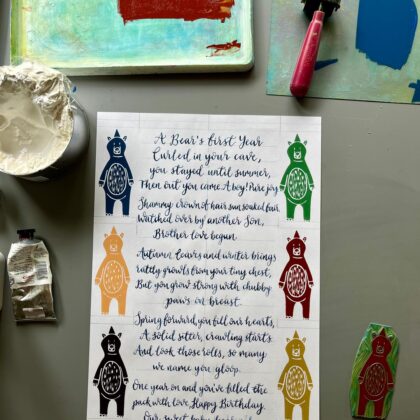 A Bear's first Year
Curled in your cave,
you stayed until summer,
Then out you came. A boy! Pure joy.
Shammy crown. A hair sun soaked fair
Watched over by another Son,
Brother love begun.
Autumn leaves and winter brings
rattly growls from your tiny chest,
But you grow strong with chubby
paws on breast.
Spring forward, you fill our hearts,
A solid sitter, crawling starts.
And look those roles, so many
we name you gloop.
One year on and you've filled the
pack with love. Happy Birthday.
Our sweet baby